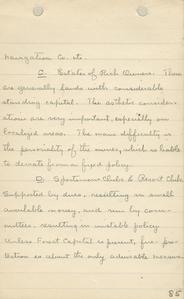 Navigation Co. etc.
C. Estates of Rich Owners. These
are generally lands with considerable
standing capital. The esthetic consider-
ations are very important, especially on
localized areas. The main difficulty is
the personality of the owner, which is liable
to deviate from a fixed policy.
D. Sportsmens Clubs & Resort Clubs.
Supported by dues, resulting in small
available money, and run by com-
mittees, resulting in unstable policy.
Unless Forest Capital is present, fire-pro-
tection is about the only advisable measure.
85